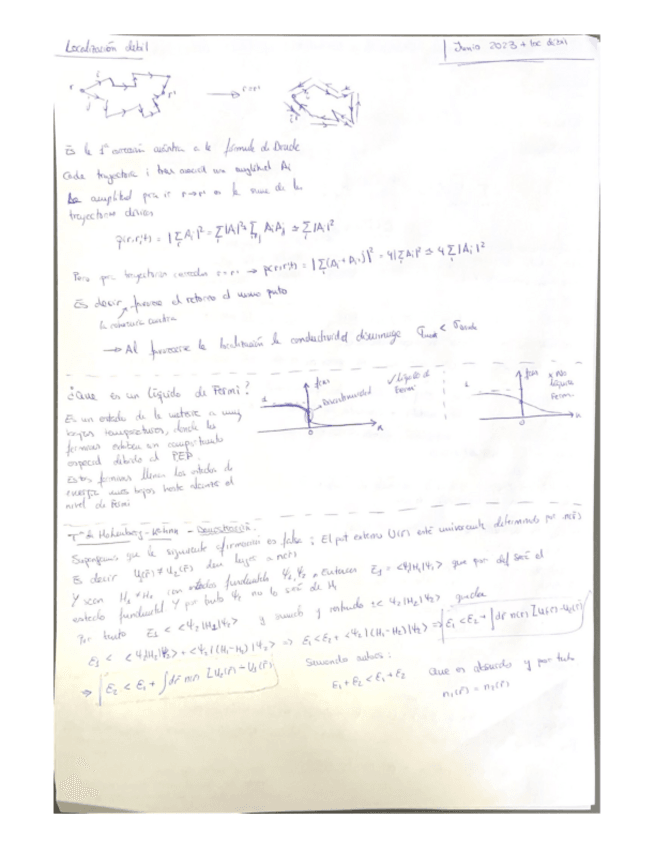 Localización débil
Junio 2023 + loc débil
r i j r'
r=r'
Es la 1ª corrección cuántica a la fórmula de Drude
Cada trayectoria i tiene asociada una amplitud Ai
La amplitud para ir r→r' es la suma de las
trayectorias
p(r,r',t) = |Σ Ai|² = Σ|Ai|² + Σ AiAj ≃ Σ|Ai|²
Pero para trayectorias cerradas r=r' → p(r,r',t) = |Σ(Ai + Ai)|² = 4|Σ Ai|² ≃ 4 Σ|Ai|²
Es decir, favorece el retorno al mismo punto
la cuántica
→ Al favorecerse la localización la conductividad disminuye <
¿Que es un Líquido de Fermi?
Es un estado de la materia a muy
bajas temperaturas, donde los
fermiones exhiben un comportamiento
especial debido al PEP.
Estos fermiones llenan los estados de
energía mas bajos hasta alcanzar el
nivel de Fermi
Discontinuidad
✓ Líquido de
Fermi
0
x No
Líquido
Fermi
0
Tª de Hohenberg-Kohn - Demostración
Supongamos que la siguiente afirmación es falsa: El pot externo U(r) está univocamente determinado por n(r)
Es decir U1(r) ≠ U2(r) dan lugar a n(r)
Y sean H1 ≠ H2 con estados fundamentales Ψ1, Ψ2. Entonces E1 = <Ψ1|H1|Ψ1> que por def será el
estado fundamental y por tanto Ψ2 no lo será de H1
Por tanto E1 < <Ψ2|H1|Ψ2> y sumando y restando <Ψ2|H2|Ψ2> queda
E1 < <Ψ2|H2|Ψ2> + <Ψ2|(H1-H2)|Ψ2> ⇒ E1 < E2 + <Ψ2|(H1-H2)|Ψ2> ⇒ E1 < E2 + ∫dr n(r) [U1(r) - U2(r)]
⇒ E2 < E1 + ∫dr n(r) [U2(r) - U1(r)]
Sumando ambos:
E1 + E2 < E1 + E2
Que es absurdo y por tanto
n1(r) = n2(r)